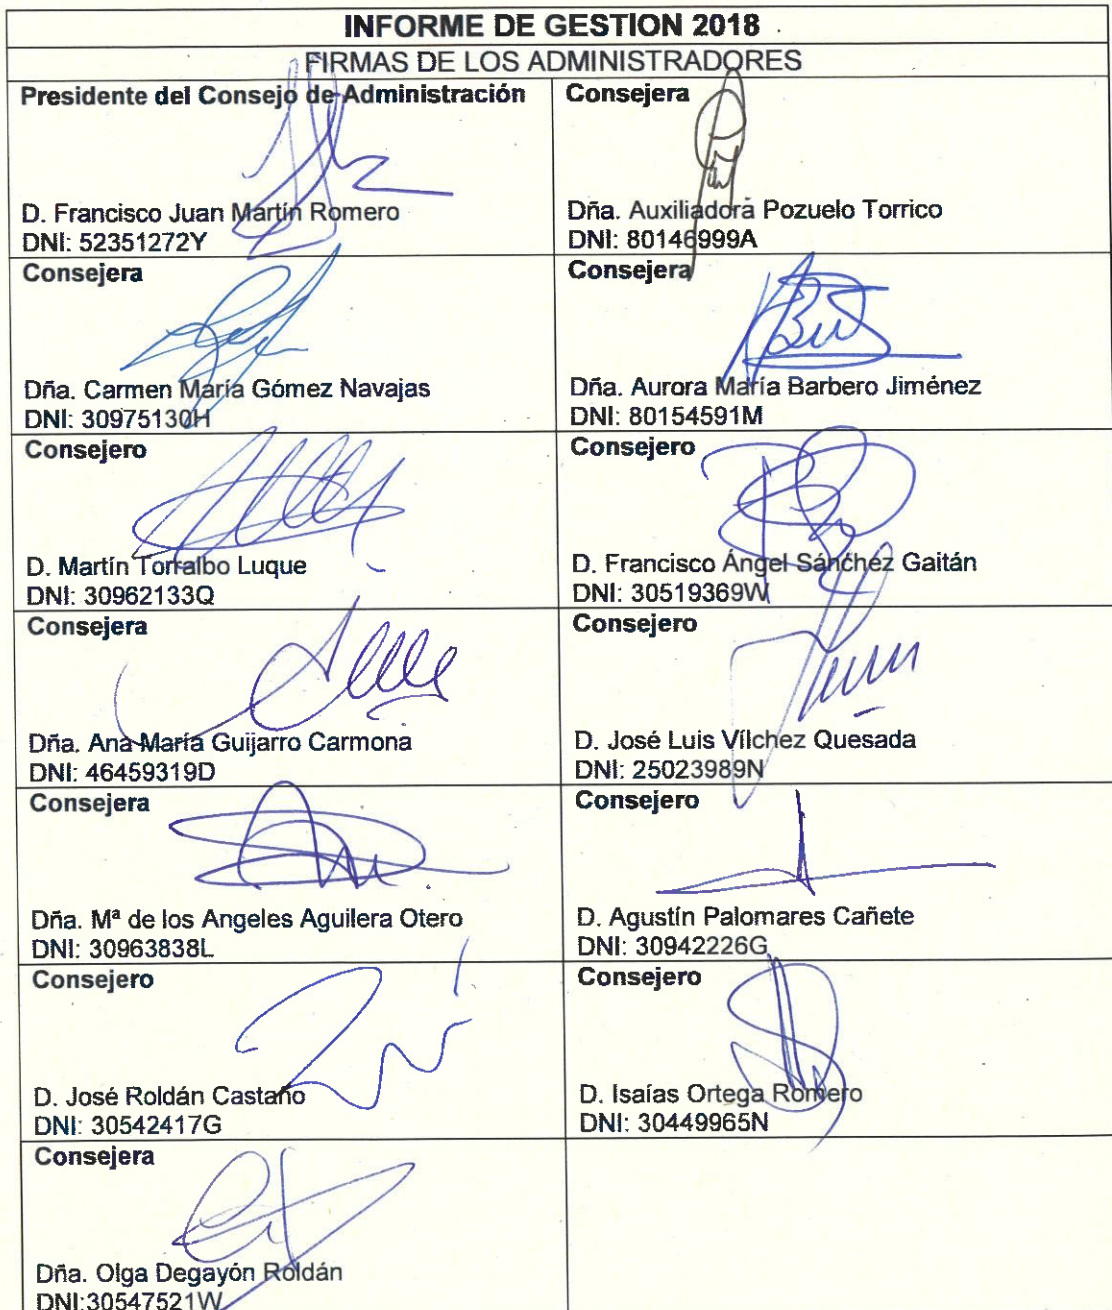 INFORME DE GESTION 2018
FIRMAS DE LOS ADMINISTRADORES
Presidente del Consejo de Administración
D. Francisco Juan Martín Romero
DNI: 52351272Y
Consejera
Dña. Auxiliadora Pozuelo Torrico
DNI: 80146999A
Consejera
Dña. Carmen María Gómez Navajas
DNI: 30975130H
Consejera
Dña. Aurora María Barbero Jiménez
DNI: 80154591M
Consejero
D. Martín Torralbo Luque
DNI: 30962133Q
Consejero
D. Francisco Ángel Sánchez Gaitán
DNI: 30519369W
Consejera
Dña. Ana María Guijarro Carmona
DNI: 46459319D
Consejero
D. José Luis Vílchez Quesada
DNI: 25023989N
Consejera
Dña. Mª de los Angeles Aguilera Otero
DNI: 30963838L
Consejero
D. Agustín Palomares Cañete
DNI: 30942226G
Consejero
D. José Roldán Castaño
DNI: 30542417G
Consejero
D. Isaías Ortega Romero
DNI: 30449965N
Consejera
Dña. Olga Degayón Roldán
DNI:30547521W